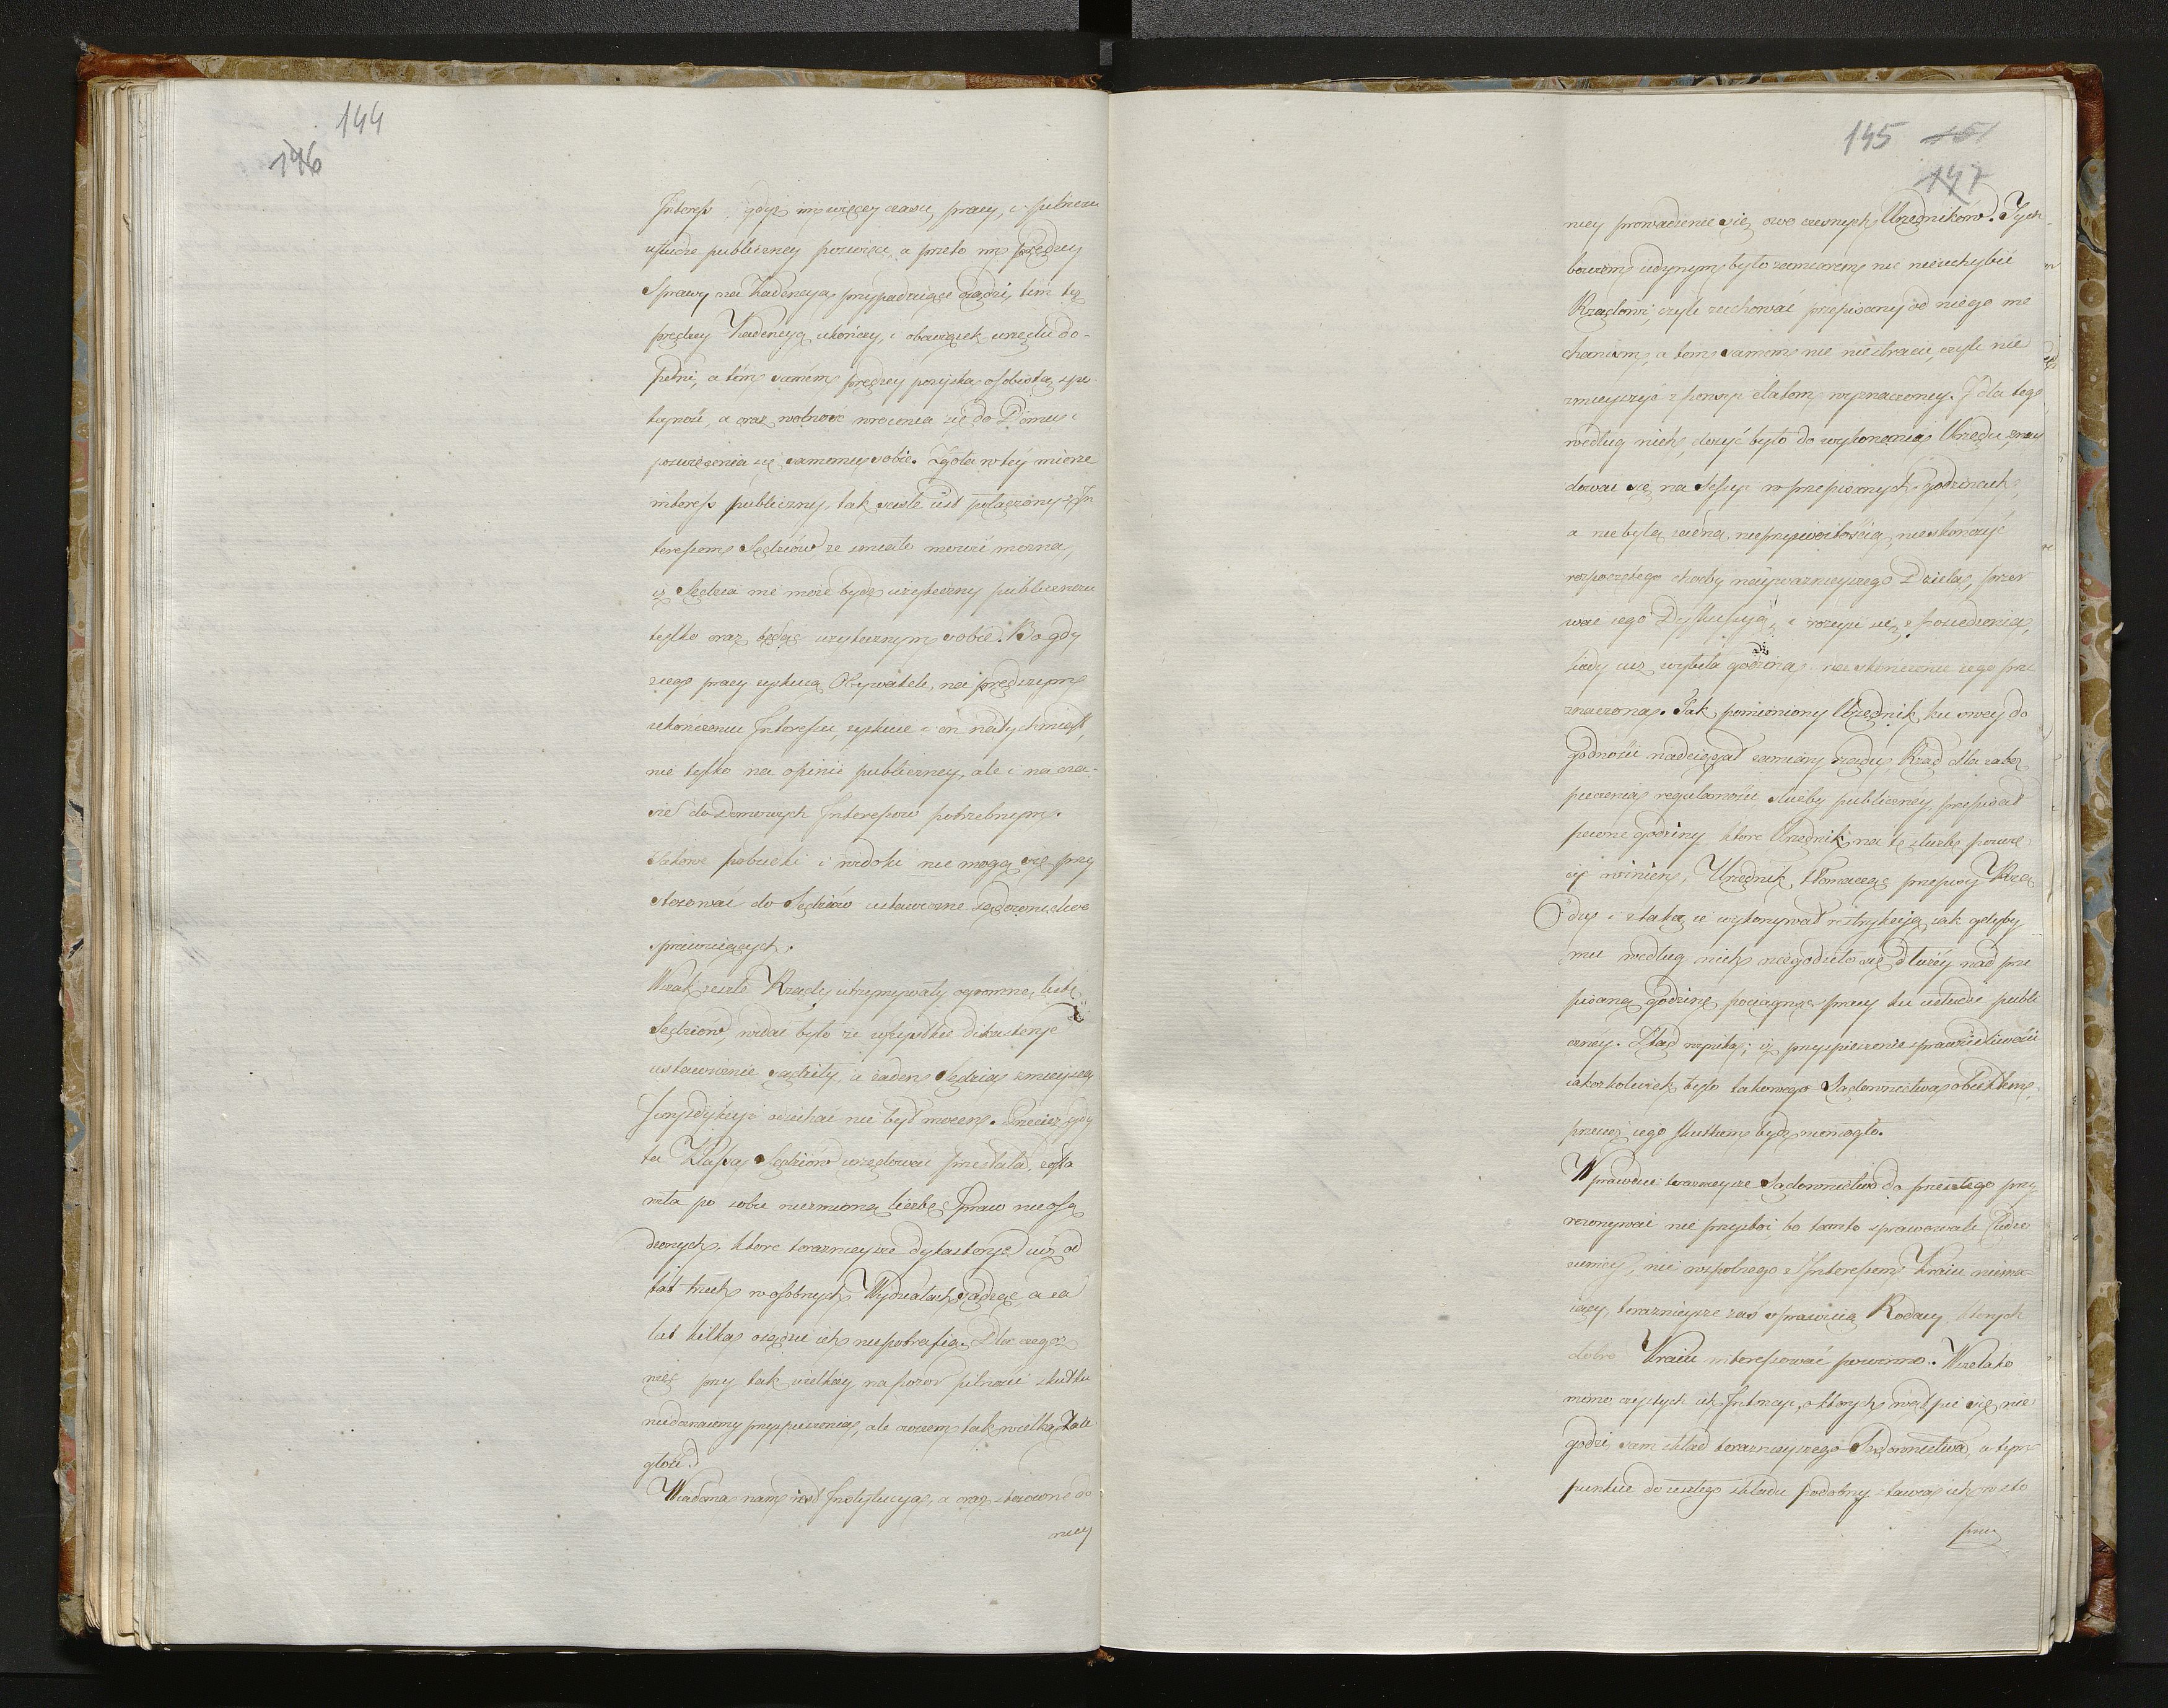 144
146
Interess, gdyż im więcey czasu, pracy, i
usłudze publiczney poswięci, a przeto im prędzey
Sprawy na Kadencyą przypadaiące osądzi, tém też
prędzey Kadencyą ukończy, i obowiązek urzędu do-
pełni, a tém samém prędzey pozyska osobistą spo-
kayność, a oraz wolność wrocenia się do Domu i
poswięcenia się samemu sobie. Zgoła w téy mierze
interess publiczny, tak scisle iest połączony z In
teressem Sędziów, że smiało mowić można,
iż Sędzia nie może bydź użyteczny publicznemu
tylko oraz będąc użytecznym sobie. Bo gdy
z iego pracy zyskuią Obywatele, na prędszym
ukonczeniu Interessu, zyskuie i on natychmiast,
nie tylko na opinii publiczney, ale i na cza-
sie do Domowych Interessow potrzebnym.
Takowe pobudki i widoki nie mogą się przy
stosować do Sędziów ustawiczne sądownictwo
sprawuiących.
Wszak zeszłe Rządy utrzymywały ogromną liczbę
Sędziów, widać było że wszystkie dikasterye
ustawicznie sądziły, a żaden Sędzia zmieyszey
Juryzdykcyi odiechać nie był mocen. Przecież gdy
ta Klassa Sędziów urzędować przestała, zosta
wiła po sobie niezmierną liczbę Spraw nieosą
dzonych, ktore terazniejsze dykasterye już od
lat trzech w osobnych Wydziałach sądząc a za
lat kilka osądzić ich niepotrafią. Dla czegoż
więc przy tak wielkiey na pozor pilności skutku
niedoznaiemy przyspieszenia, ale owszem tak wielką Zale
głość?
Wiadoma nam iest Instytucya, a oraz stosowne do
niey
145
147
niey prowadzenie się owoczesnych Urzędników. Tych
bowiem iedynym było zamiarem nic nieuchybić
Rządowi; czyli zachować przepisany od niego me
chanizm, a tem samem nic niestracić, czyli nie
zmieyszyć z pensyi Etatem wyznaczoney. I dla tego
według nich, dosyć było do wykonania Urzędu, znay
dować się na Sessyi w przepisanych godzinach,
a niebyła żadną nieprzyzwoitością, nieskończyć
rozpoczętego choćby nayważnieyszego Dzieła, przer
wać iego Dyskussyą, i rozeyść się z posiedzenia,
kiedy iuż wybiła godzina na skończenie iego prze
znaczona. Tak pomieniony Urzędnik ku swey do
godności nadciągał zamiary rządu. Rząd dla zabez
pieczenia regularności służby publiczney, przepisał
pewne godziny ktore Urzędnik na tę służbę poswię
cić winien, Urzędnik tłomacząc przepisy Rzą
du, i z taką ie wykonywał restrykcyą, iak gdyby
mu według nich niegodziło się dłużéy nad prze
pisaną godzinę pociągnąć pracy ku usłudze publi
czney. Ztąd wynika; iż przyspieszenie sprawiedliwości
iakożkolwiek było takowego Sądownictwa obiektem,
przecież iego skutkiem bydź niemogło.
Wprawdzie terazniejsze Sądownictwo do przeszłego przy
rownywać nie przystoi, bo tamto sprawowali ludzie
, nic wspolnego z Interessem Kraiu niema-
iący, terazniejsze zaś sprawuią Rodacy, ktorych
dobro Kraiu interessować powinno. Wszelako
mimo czystych ich Intencyi, o ktorych wątpić się nie
godzi, sam skład terazniejszego Sądownictwa, w tym
punkcie do zeszłego składu podobny stawia ich w sto